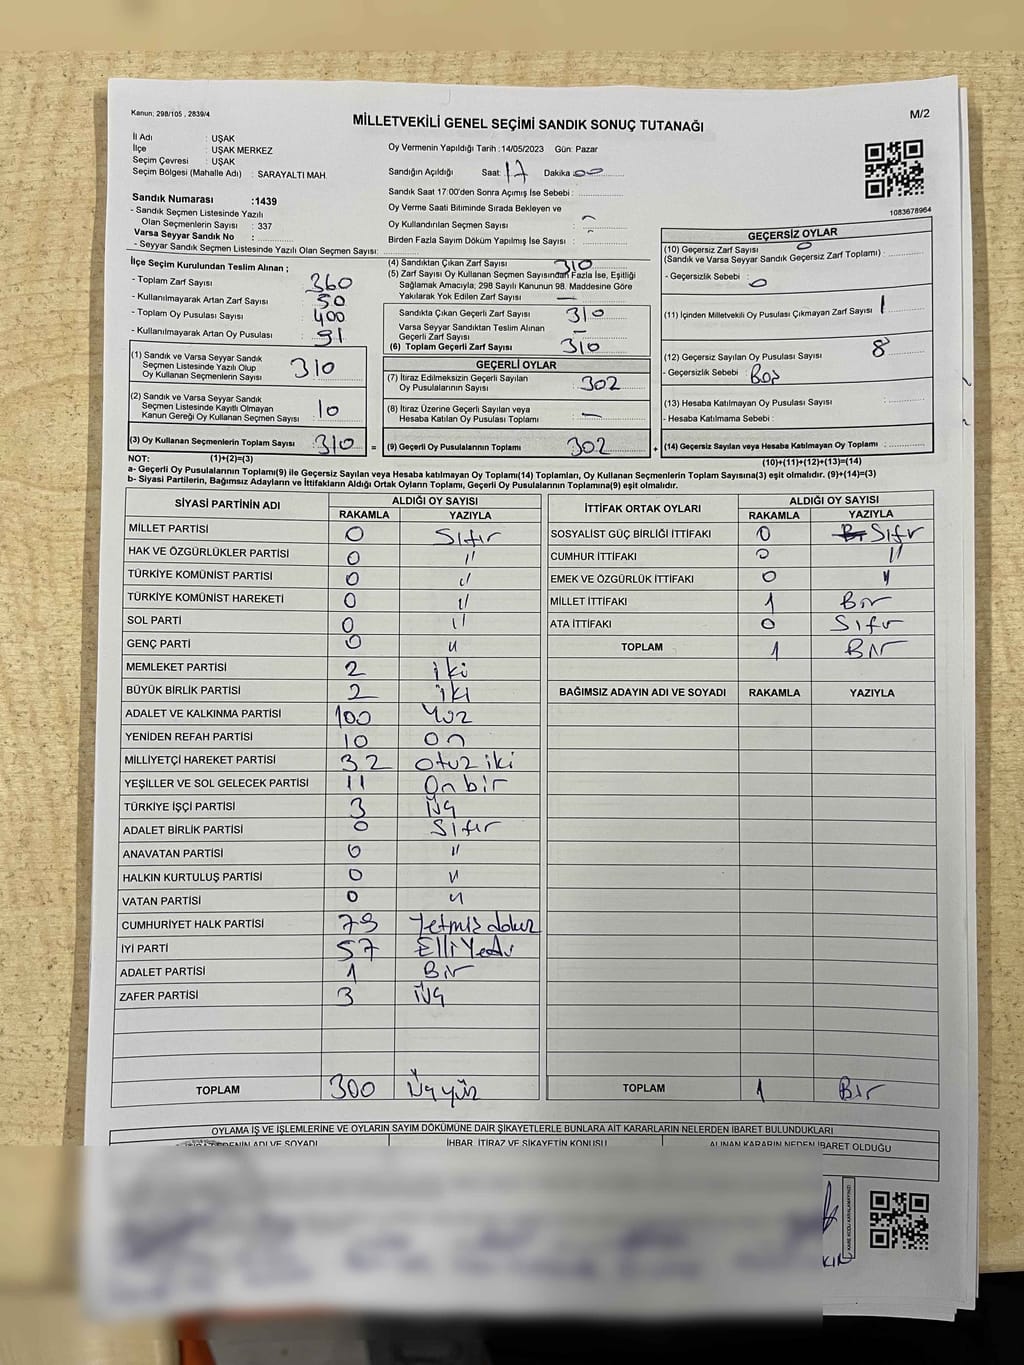 Kanun; 298/105 , 2839/4
MİLLETVEKİLİ GENEL SEÇİMİ SANDIK SONUÇ TUTANAĞI
M/2
İl Adı : UŞAK
İlçe : UŞAK MERKEZ
Seçim Çevresi : UŞAK
Seçim Bölgesi (Mahalle Adı) : SARAYALTI MAH.
Oy Vermenin Yapıldığı Tarih :14/05/2023 Gün: Pazar
Sandığın Açıldığı Saat: 17 Dakika: 00
Sandık Saat 17:00'den Sonra Açımış İse Sebebi :
Oy Verme Saati Bitiminde Sırada Bekleyen ve
Oy Kullandırılan Seçmen Sayısı :
Birden Fazla Sayım Döküm Yapılmış İse Sayısı :
1083678964
Sandık Numarası :1439
- Sandık Seçmen Listesinde Yazılı
Olan Seçmenlerin Sayısı : 337
Varsa Seyyar Sandık No :
- Seyyar Sandık Seçmen Listesinde Yazılı Olan Seçmen Sayısı:
İlçe Seçim Kurulundan Teslim Alınan ;
- Toplam Zarf Sayısı : 360
- Kullanılmayarak Artan Zarf Sayısı : 50
- Toplam Oy Pusulası Sayısı : 400
- Kullanılmayarak Artan Oy Pusulası : 91
(1) Sandık ve Varsa Seyyar Sandık
Seçmen Listesinde Yazılı Olup
Oy Kullanan Seçmenlerin Sayısı : 310
(2) Sandık ve Varsa Seyyar Sandık
Seçmen Listesinde Kayıtlı Olmayan
Kanun Gereği Oy Kullanan Seçmen Sayısı : 10
(3) Oy Kullanan Seçmenlerin Toplam Sayısı : 310 =
(4) Sandıktan Çıkan Zarf Sayısı : 310
(5) Zarf Sayısı Oy Kullanan Seçmen Sayısından Fazla İse, Eşitliği
Sağlamak Amacıyla; 298 Sayılı Kanunun 98. Maddesine Göre
Yakılarak Yok Edilen Zarf Sayısı : —
Sandıkta Çıkan Geçerli Zarf Sayısı : 310
Varsa Seyyar Sandıktan Teslim Alınan
Geçerli Zarf Sayısı : —
(6) Toplam Geçerli Zarf Sayısı : 310
GEÇERLİ OYLAR
(7) İtiraz Edilmeksizin Geçerli Sayılan
Oy Pusulalarının Sayısı : 302
(8) İtiraz Üzerine Geçerli Sayılan veya
Hesaba Katılan Oy Pusulası Toplamı : —
(9) Geçerli Oy Pusulalarının Toplamı : 302 +
GEÇERSİZ OYLAR
(10) Geçersiz Zarf Sayısı 0
(Sandık ve Varsa Seyyar Sandık Geçersiz Zarf Toplamı) :
- Geçersizlik Sebebi : 0
(11) İçinden Milletvekili Oy Pusulası Çıkmayan Zarf Sayısı : 1
(12) Geçersiz Sayılan Oy Pusulası Sayısı : 8
- Geçersizlik Sebebi : Boş
(13) Hesaba Katılmayan Oy Pusulası Sayısı :
- Hesaba Katılmama Sebebi :
(14) Geçersiz Sayılan veya Hesaba Katılmayan Oy Toplamı :
NOT: (1)+(2)=(3) (10)+(11)+(12)+(13)=(14)
a- Geçerli Oy Pusulalarının Toplamı(9) ile Geçersiz Sayılan veya Hesaba katılmayan Oy Toplamı(14) Toplamları, Oy Kullanan Seçmenlerin Toplam Sayısına(3) eşit olmalıdır. (9)+(14)=(3)
b- Siyasi Partilerin, Bağımsız Adayların ve İttifakların Aldığı Ortak Oyların Toplamı, Geçerli Oy Pusulalarının Toplamına(9) eşit olmalıdır.
SİYASİ PARTİNİN ADI ALDIĞI OY SAYISI
RAKAMLA YAZIYLA
MİLLET PARTİSİ 0 Sıfır
HAK VE ÖZGÜRLÜKLER PARTİSİ 0 "
TÜRKİYE KOMÜNİST PARTİSİ 0 "
TÜRKİYE KOMÜNİST HAREKETİ 0 "
SOL PARTİ 0 "
GENÇ PARTİ 0 "
MEMLEKET PARTİSİ 2 iki
BÜYÜK BİRLİK PARTİSİ 2 iki
ADALET VE KALKINMA PARTİSİ 100 Yüz
YENİDEN REFAH PARTİSİ 10 On
MİLLİYETÇİ HAREKET PARTİSİ 32 Otuz iki
YEŞİLLER VE SOL GELECEK PARTİSİ 11 On bir
TÜRKİYE İŞÇİ PARTİSİ 3 Üç
ADALET BİRLİK PARTİSİ 0 Sıfır
ANAVATAN PARTİSİ 0 "
HALKIN KURTULUŞ PARTİSİ 0 "
VATAN PARTİSİ 0 "
CUMHURİYET HALK PARTİSİ 79 Yetmiş dokuz
İYİ PARTİ 57 Elli Yedi
ADALET PARTİSİ 1 Bir
ZAFER PARTİSİ 3 Üç
TOPLAM 300 Üç yüz
İTTİFAK ORTAK OYLARI ALDIĞI OY SAYISI
RAKAMLA YAZIYLA
SOSYALİST GÜÇ BİRLİĞİ İTTİFAKI 0 Sıfır
CUMHUR İTTİFAKI 0 "
EMEK VE ÖZGÜRLÜK İTTİFAKI 0 "
MİLLET İTTİFAKI 1 Bir
ATA İTTİFAKI 0 Sıfır
TOPLAM 1 Bir
BAĞIMSIZ ADAYIN ADI VE SOYADI RAKAMLA YAZIYLA
TOPLAM 1 Bir
OYLAMA İŞ VE İŞLEMLERİNE VE OYLARIN SAYIM DÖKÜMÜNE DAİR ŞİKAYETLERLE BUNLARA AİT KARARLARIN NELERDEN İBARET BULUNDUKLARI
ADI VE SOYADI İHBAR, İTİRAZ VE ŞİKAYETİN KONUSU ALINAN KARARIN NEDEN İBARET OLDUĞU